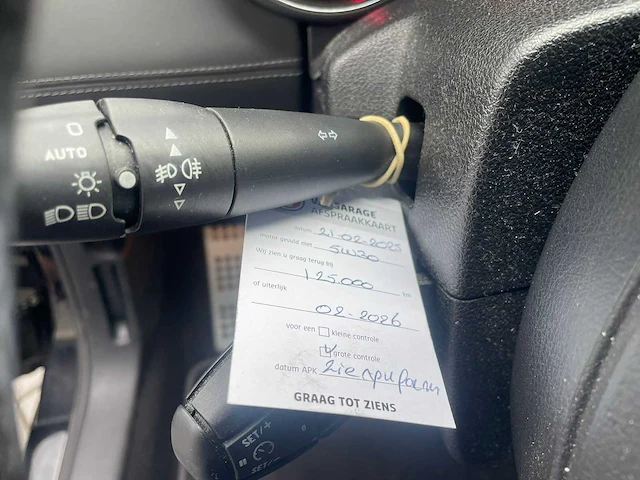 AUTO
GARAGE
AFSPRAAKKAART
datum 21-02-2025
motor gevuld met 5W30
Wij zien u graag terug bij
125.000 km
of uiterlijk
02-2026
voor een kleine controle
grote controle
datum APK zie
GRAAG TOT ZIENS
SET/+
SET/-